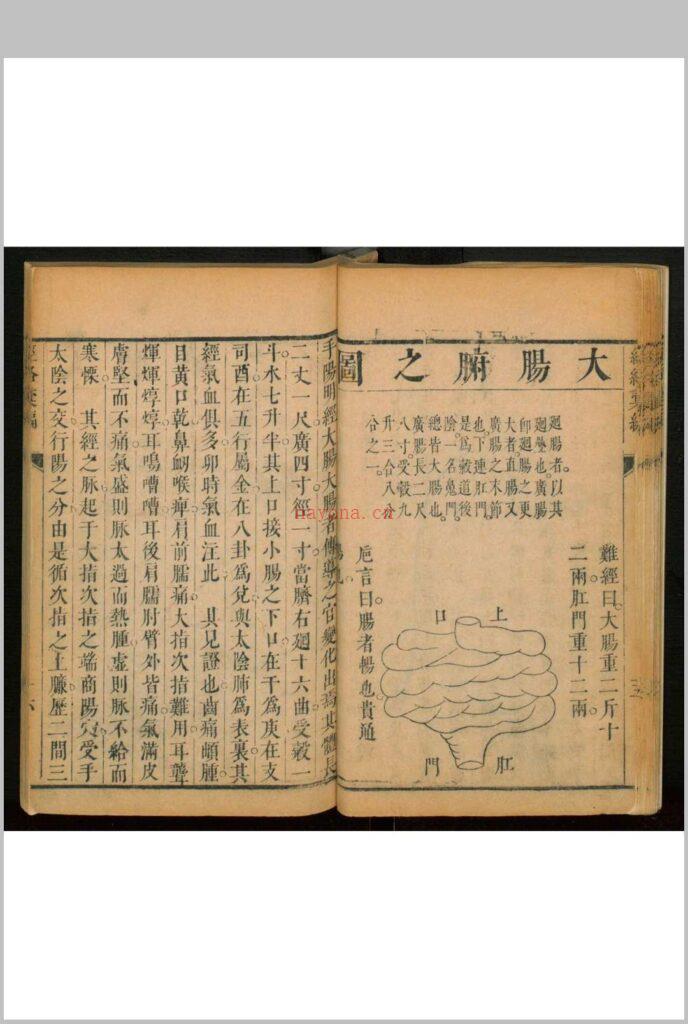 大腸腑之圖
難經曰大腸重二斤十
二兩肛門重十二兩
廻腸者以其
廻疊也廣腸
卽廻腸之更
大者直腸又
廣腸之末節
也下連肛門
是爲穀道後
陰一名鬼門
總皆大腸也
廣腸長二尺
八寸受穀九
升三合八分
合之一
上口
肛門
巵言曰腸者暢也貴通
手陽明經大腸大腸者傳導之官變化出焉其體長
二丈一尺廣四寸徑一寸當臍右廻十六曲受穀一
斗水七升半其上口接小腸之下口在干爲庚在支
司酉在五行屬金在八卦爲兌與太陰肺爲表裏其
經氣血俱多卯時氣血注此 其見證也齒痛䪼腫
目黃口乾鼻衂喉痺肩前臑痛大指次指難用耳聾
煇煇焞焞耳鳴嘈嘈耳後肩臑肘臂外皆痛氣滿皮
膚堅而不痛氣盛則脉太過而熱腫虛則脉不給而
寒慄 其經之脉起于大指次指之端商陽穴受手
太陰之交行陽之分由是循次指之上廉歷二間三
nayona.cn